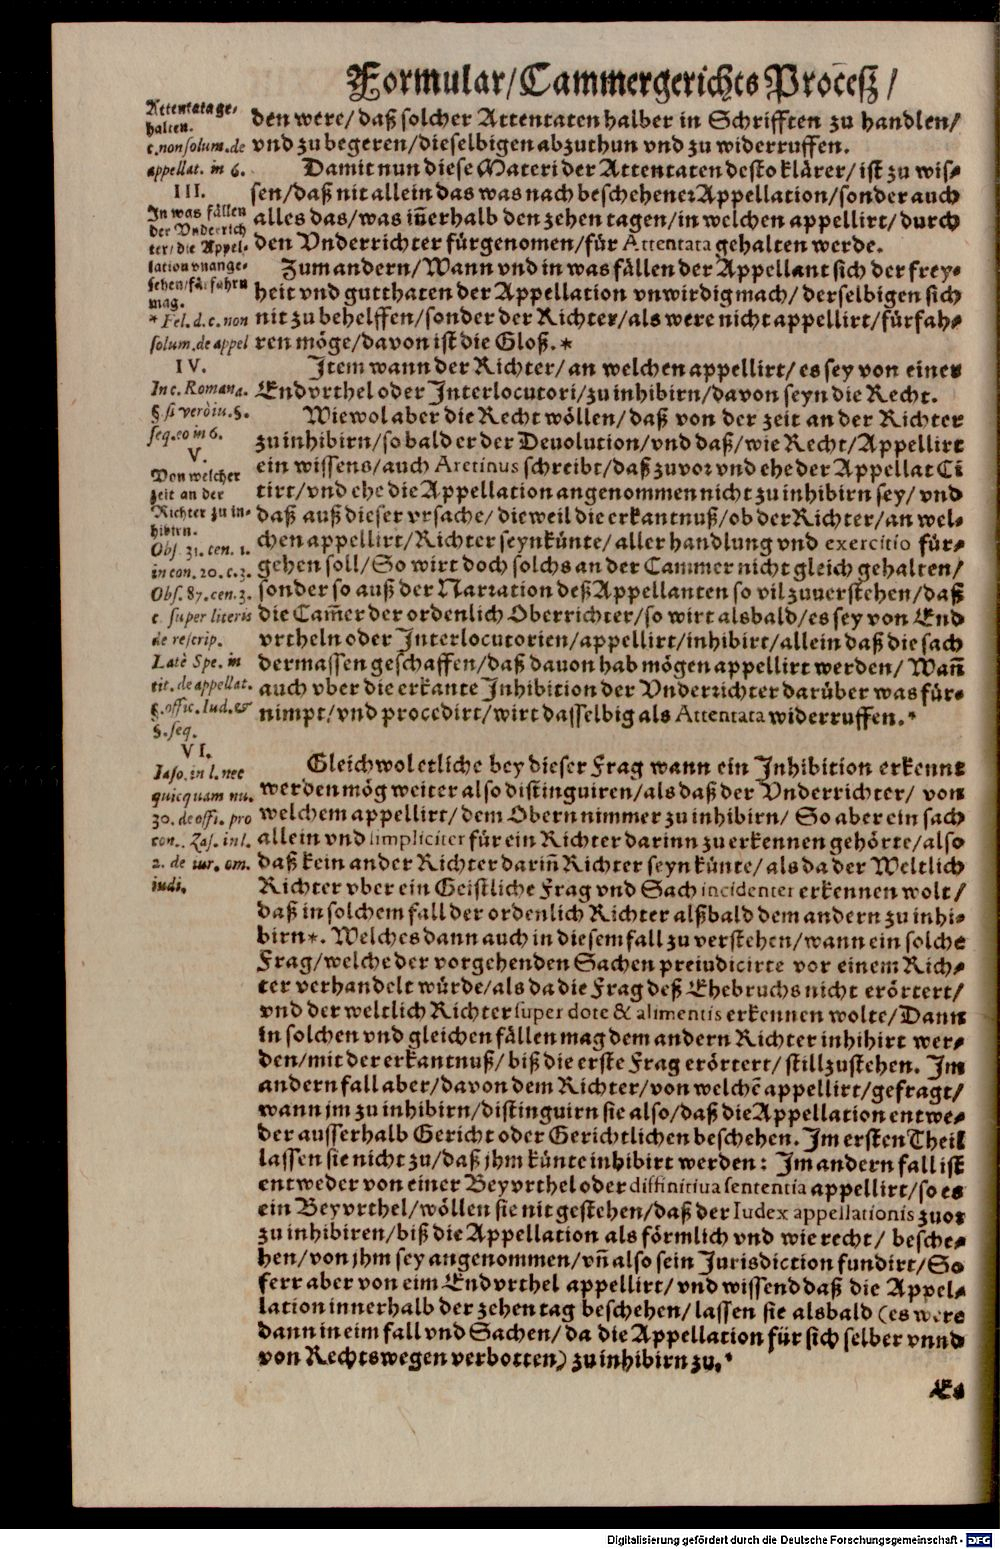 Formular/Cammergerichts Procesz/
Attentata ge-
halten.
c. non solum. de
appellat. in 6.
III.
In was fällen
der Vnderrich
ter/die Appel-
lation vnange-
sehen/fürfahrn
mag.
* Fel. d. c. non
solum. de appel
IV.
In c. Romana.
§. si verò iu. §.
seq. eo in 6.
V.
Von welcher
zeit an der
Richter zu in-
hibirn.
Obs. 31. cen. 1.
in con. 20. c. 3.
Obs. 87. cen. 3.
c. super literis
de rescrip.
Latè Spe. in
tit. de appellat.
§. offic. Iud. &
§. seq.
VI.
Jaso. in l. nec
quicquam nu.
30. de offi. pro
con.. Zas. in l.
2. de iur. om.
iudi.
den were/ daß solcher Attentaten halber in Schrifften zu handlen/
vnd zu begeren/dieselbigen abzuthun vnd zu widerruffen.
Damit nun diese Materi der Attentaten desto klärer/ ist zu wis-
sen/daß nit allein das was nach beschehener Appellation/sonder auch
alles das/was iñerhalb den zehen tagen/in welchen appellirt/ durch
den Vnderrichter fürgenomen/für Attentata gehalten werde.
Zum andern/Wann vnd in was fällen der Appellant sich der frey-
heit vnd gutthaten der Appellation vnwirdig mach/ derselbigen sich
nit zu behelffen/sonder der Richter/als were nicht appellirt/fürfah-
ren möge/davon ist die Gloß.*
Item wann der Richter/ an welchen appellirt/ es sey von einer
Endvrthel oder Interlocutori/zu inhibirn/davon seyn die Recht.
Wiewol aber die Recht wöllen/ daß von der zeit an der Richter
zu inhibirn/so bald er der Deuolution/vnd daß/wie Recht/Appellirt
ein wissens/auch Aretinus schreibt/daß zuvor vnd ehe der Appellat Cĩ
tirt/vnd ehe die Appellation angenommen nicht zu inhibirn sey/ vnd
daß auß dieser vrsache/ dieweil die erkantnuß/ob der Richter/an wel-
chen appellirt/Richter seyn künte/ aller handlung vnd exercitio für-
gehen soll/So wirt doch solchs an der Cammer nicht gleich gehalten/
sonder so auß der Narration deß Appellanten so vil zuuerstehen/daß
die Cam̃er der ordenlich Oberrichter/so wirt alsbald/es sey von End
vrtheln oder Interlocutorien/appellirt/inhibirt/allein daß die sach
dermassen geschaffen/daß dauon hab mögen appellirt werden/ Wañ
auch vber die erkante Inhibition der Vnderrichter darüber was für-
nimpt/vnd procedirt/wirt dasselbig als Attentata widerruffen.*
Gleichwol etliche bey dieser Frag wann ein Inhibition erkennt
werden mög weiter also distinguiren/als daß der Vnderrichter/ von
welchem appellirt/ dem Obern nimmer zu inhibirn/ So aber ein sach
allein vnd simpliciter für ein Richter darinn zu erkennen gehörte/also
daß kein ander Richter dariñ Richter seyn künte/ als da der Weltlich
Richter vber ein Geistliche Frag vnd Sach incidenter erkennen wolt/
daß in solchem fall der ordenlich Richter alßbald dem andern zu inhi-
birn*. Welches dann auch in diesem fall zu verstehen/wann ein solche
Frag/welche der vorgehenden Sachen preiudicirte vor einem Rich-
ter verhandelt würde/als da die Frag deß Ehebruchs nicht erörtert/
vnd der weltlich Richter super dote & alimentis erkennen wolte/Dann
in solchen vnd gleichen fällen mag dem andern Richter inhihirt wer-
den/mit der erkantnuß/ biß die erste Frag erörtert/ stillzustehen. Im
andern fall aber/davon dem Richter/von welchẽ appellirt/gefragt/
wann jm zu inhibirn/distinguirn sie also/daß die Appellation entwe-
der ausserhalb Gericht oder Gerichtlichen beschehen. Im ersten Theil
lassen sie nicht zu/daß jhm künte inhibirt werden: Im andern fall ist
entweder von einer Beyvrthel oder diffinitiua sententia appellirt/so es
ein Beyvrthel/wöllen sie nit gestehen/daß der Iudex appellationis zuor
zu inhibiren/biß die Appellation als förmlich vnd wie recht/ besche-
hen/von jhm sey angenommen/vñ also sein Jurisdiction fundirt/So
ferr aber von eim Endvrthel appellirt/ vnd wissend daß die Appel-
lation innerhalb der zehen tag beschehen/ lassen sie alsbald (es were
dann in eim fall vnd Sachen/ da die Appellation für sich selber vnnd
von Rechtswegen verbotten) zu inhibirn zu.*
Es
Digitalisierung gefördert durch die Deutsche Forschungsgemeinschaft - DFG